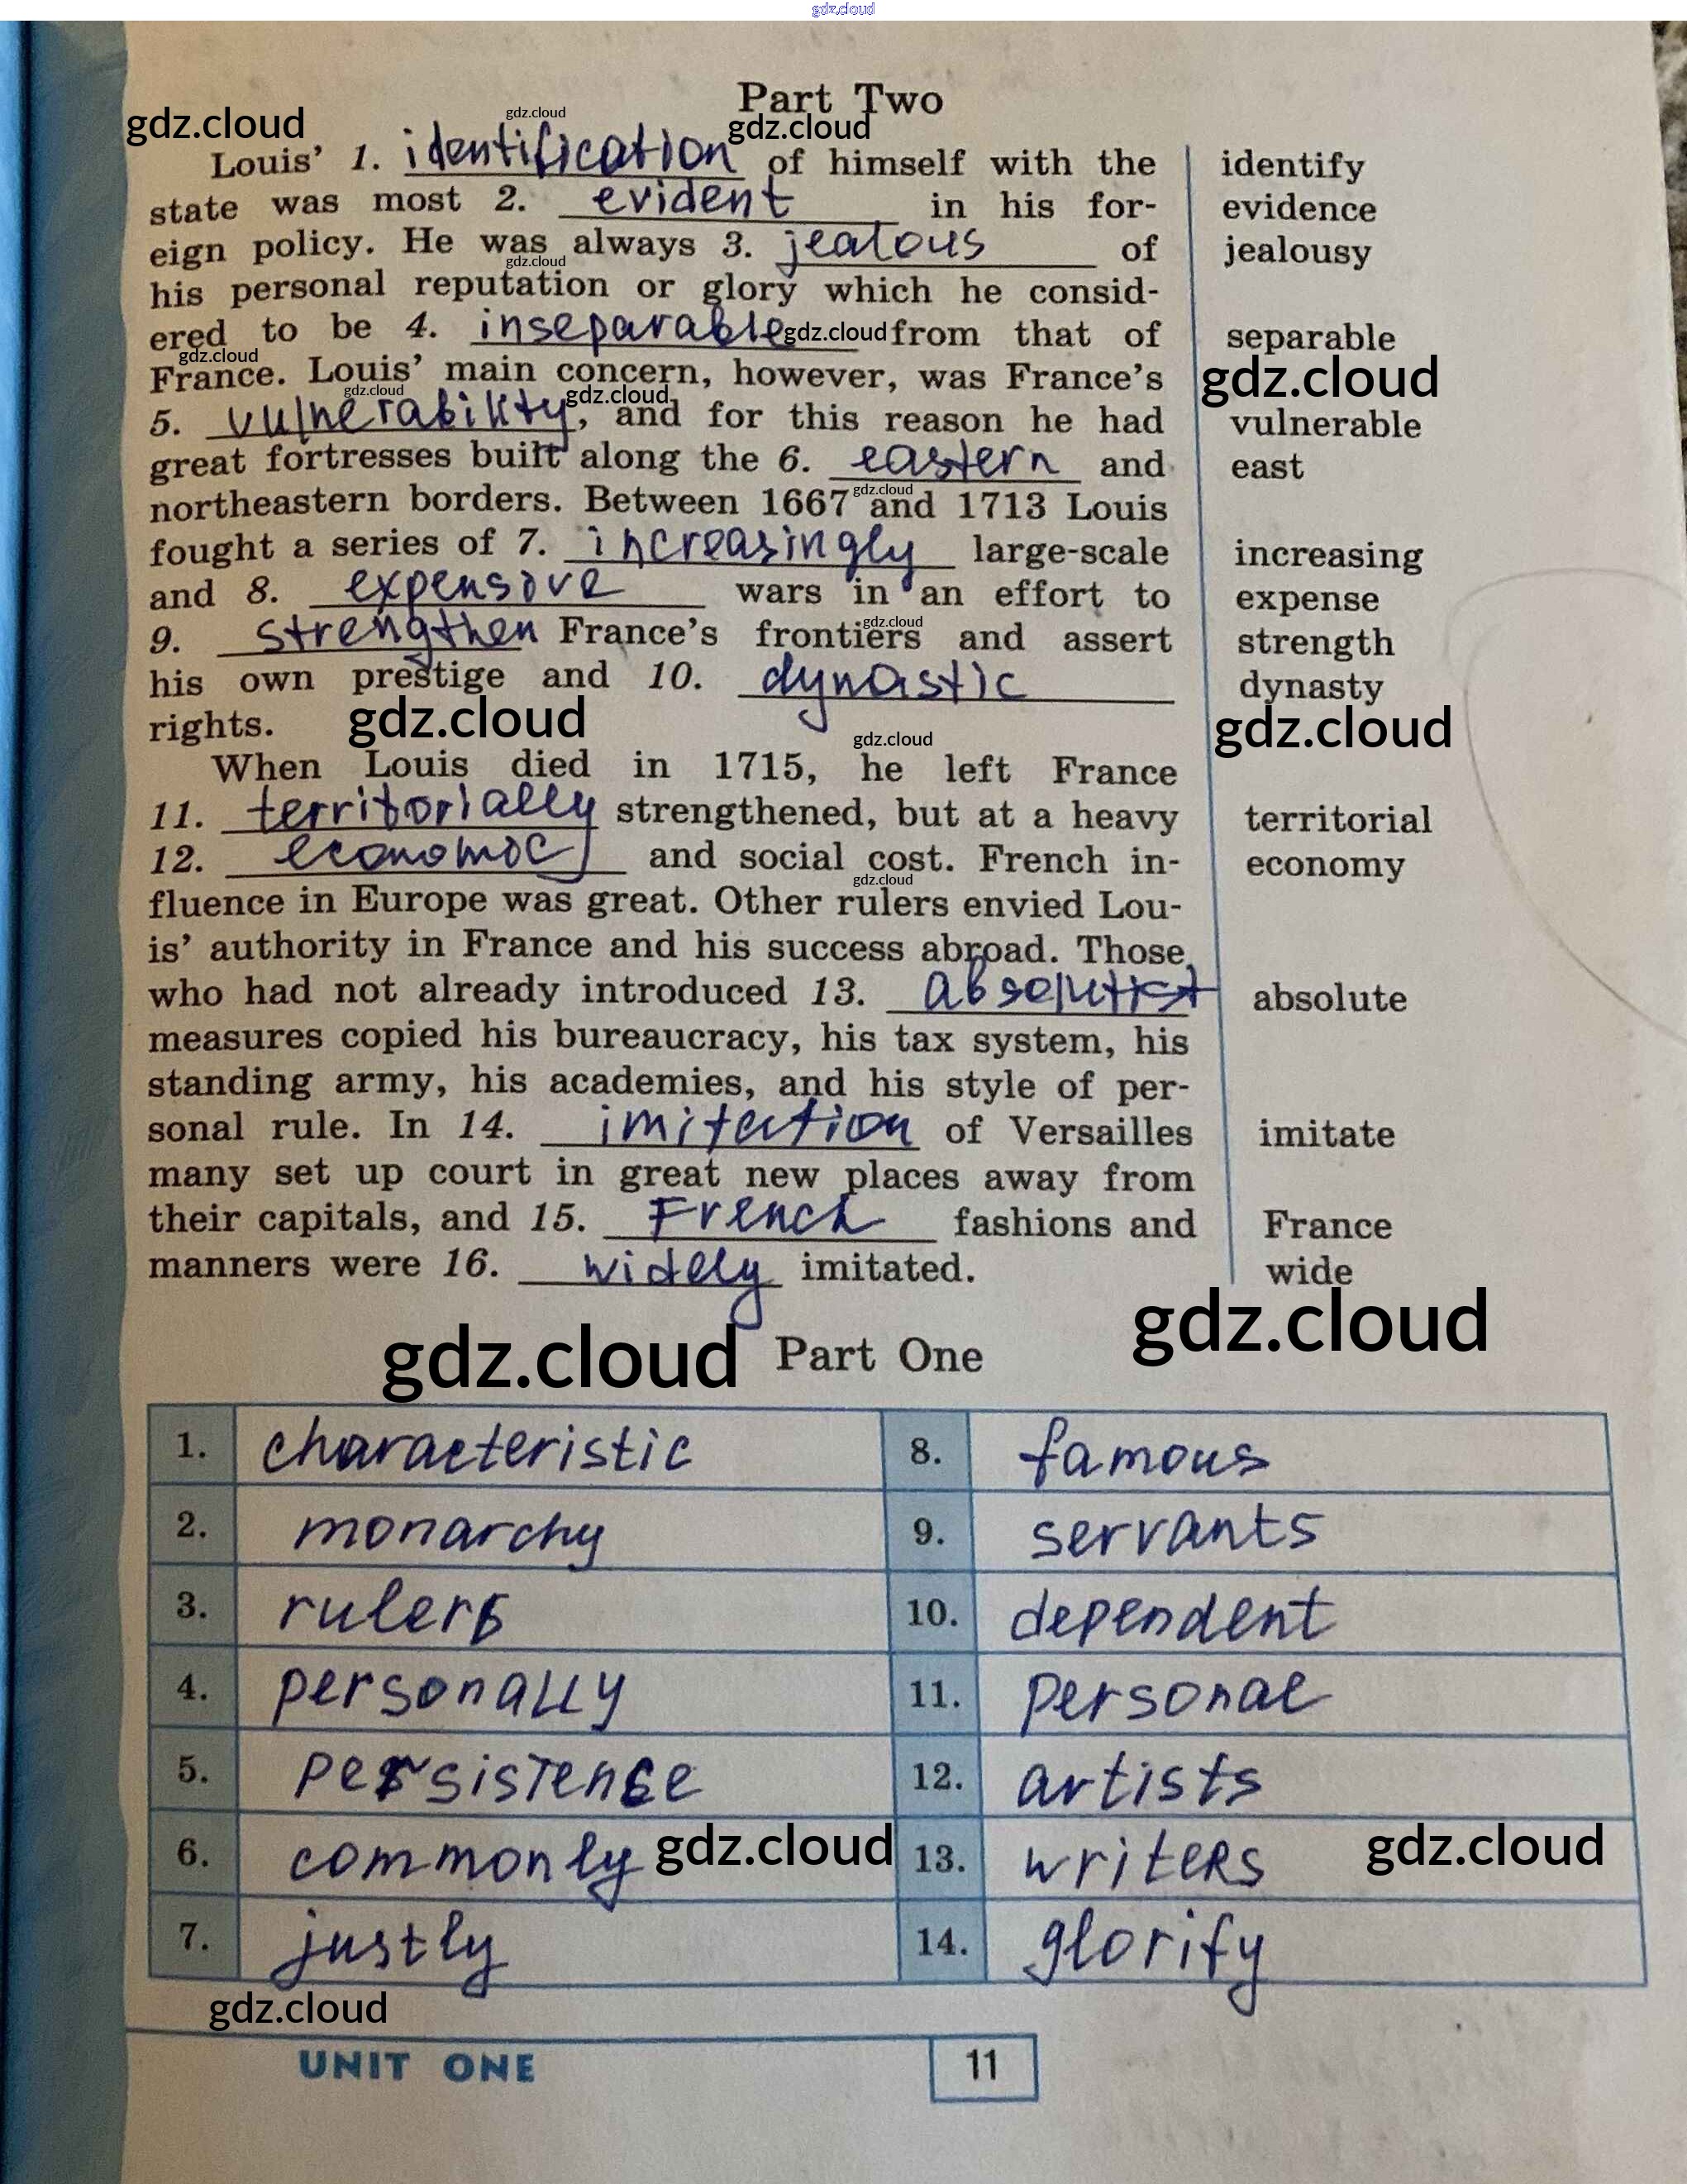 gdz.cloud
Part Two
gdz.cloud gdz.cloud gdz.cloud
Louis' 1. identification of himself with the identify
state was most 2. evident in his for- evidence
eign policy. He was always 3. jealous of jealousy
gdz.cloud
his personal reputation or glory which he consid-
ered to be 4. inseparable gdz.cloud from that of separable
gdz.cloud
France. Louis' main concern, however, was France's gdz.cloud
gdz.cloud gdz.cloud
5. vulnerability, and for this reason he had vulnerable
great fortresses built along the 6. eastern and east
gdz.cloud
northeastern borders. Between 1667 and 1713 Louis
fought a series of 7. increasingly large-scale increasing
and 8. expensive wars in an effort to expense
gdz.cloud
9. strengthen France's frontiers and assert strength
his own prestige and 10. dynastic dynasty
rights. gdz.cloud gdz.cloud
gdz.cloud
When Louis died in 1715, he left France
11. territorially strengthened, but at a heavy territorial
12. economic and social cost. French in- economy
gdz.cloud
fluence in Europe was great. Other rulers envied Lou-
is' authority in France and his success abroad. Those
who had not already introduced 13. absolutist absolute
measures copied his bureaucracy, his tax system, his
standing army, his academies, and his style of per-
sonal rule. In 14. imitation of Versailles imitate
many set up court in great new places away from
their capitals, and 15. French fashions and France
manners were 16. widely imitated. wide
gdz.cloud Part One gdz.cloud
1. characteristic 8. famous
2. monarchy 9. servants
3. rulers 10. dependent
4. personally 11. personal
5. persistence 12. artists
6. commonly gdz.cloud 13. writers gdz.cloud
7. justly 14. glorify
gdz.cloud
UNIT ONE 11